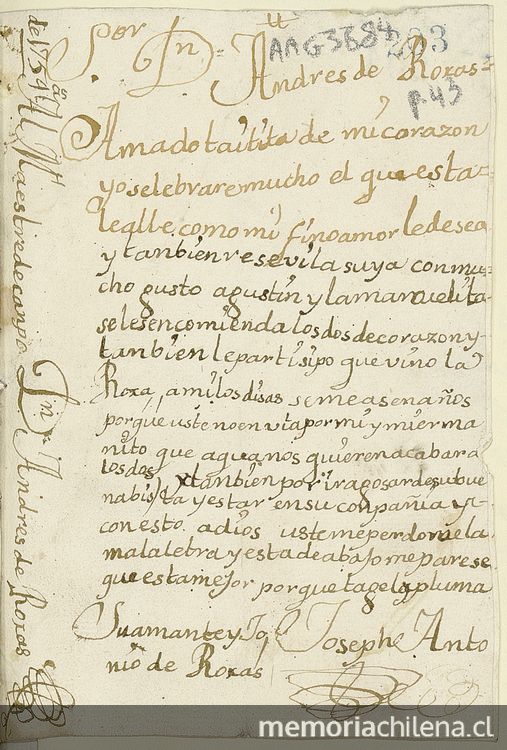 Sor Dn
Andres de Roxas
AAG3584
293
P.43
Amado taitita de mi corazon
yo selebrare mucho el que esta
le alle como mi fino amor le desea
y tanbien resevi la suya con mu
cho gusto agustin y la manuelita
se les encomienda los dos de corazon y
tanbien le partisipo que vino la
Roxa, a mi los dias se me asen años
porque uste no en via por mi y mi erma
nito que aqua nos quieren acabar a
los dos tanbien por ir a gosar de su bue
na bista y estar en su conpañia y
con esto adios uste me perdone la
mala letra y esta de abajo me parese
que esta mejor porque tage la pluma
Su amante y Jo Joseph Anto
nio de Roxas
de 1754 Al Maestre de canpo Dn Andres de Roxas
memoriachilena.cl